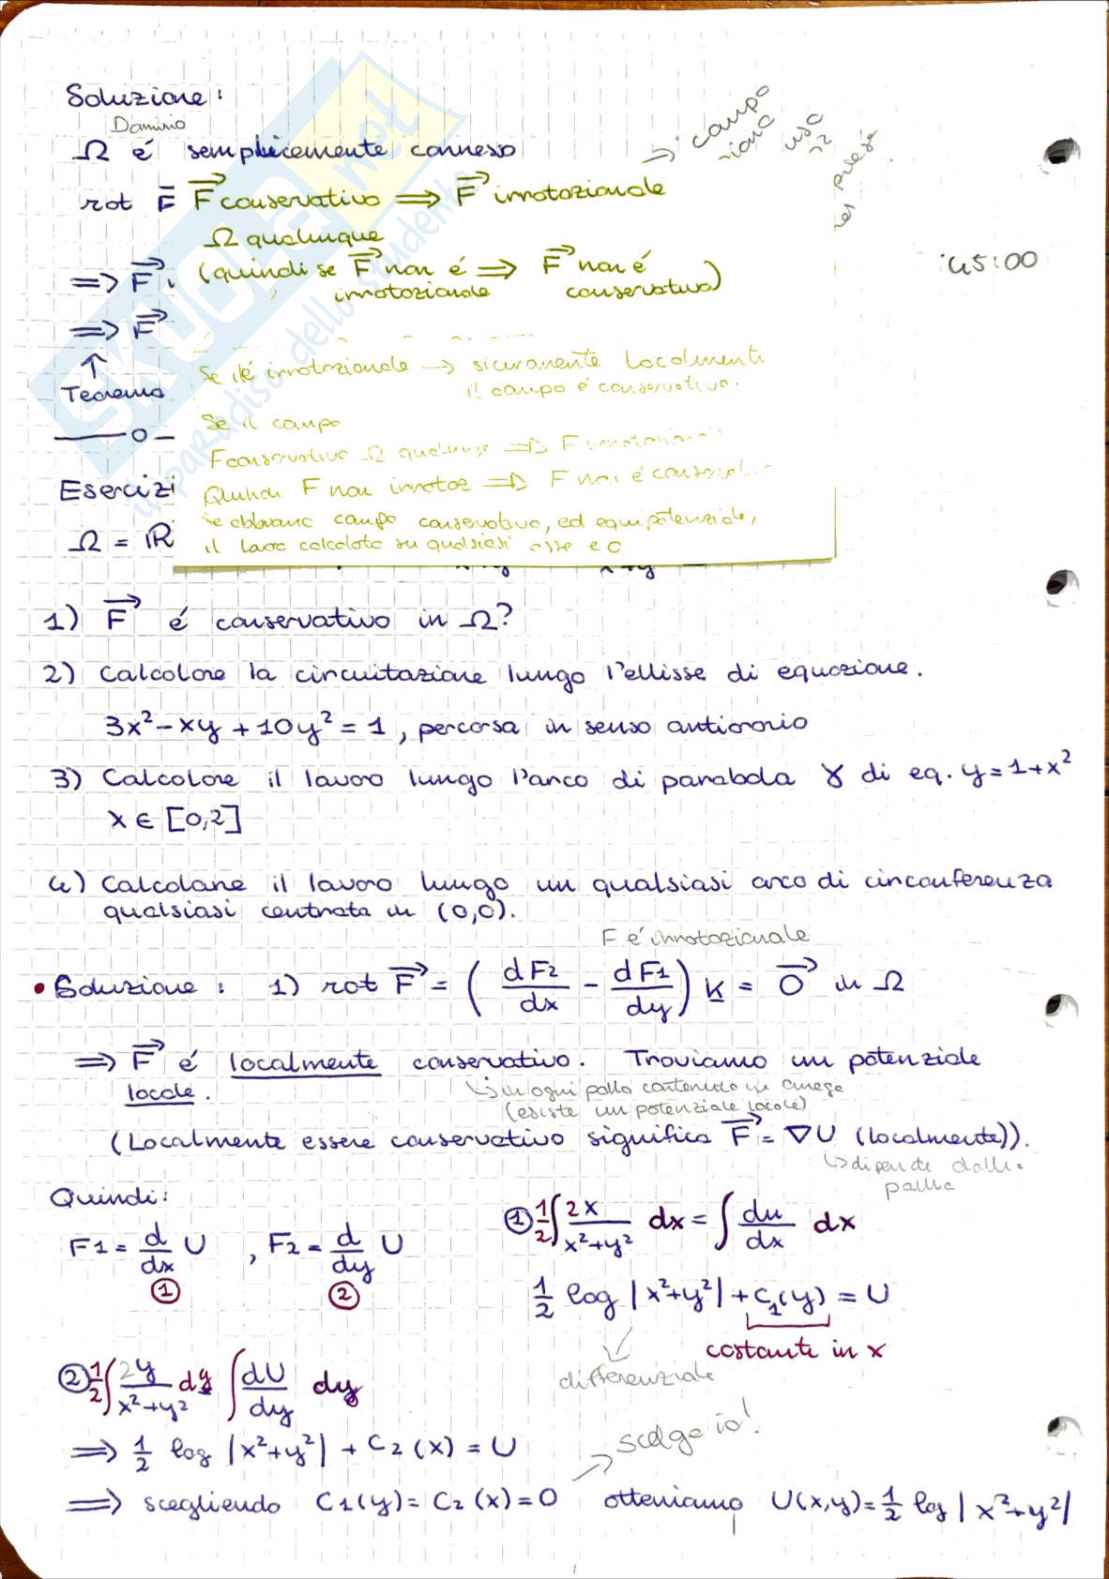 Soluzione:
Dominio
Ω é semplicemente connesso
→ campo
rot F F conservativo ⟹ F irrotazionale
Ω qualunque
⟹ F (quindi se F non é ⟹ F non é
irrotazionale conservativo)
45:00
⟹ F
↑
Teorema
Se è irrotazionale → sicuramente localmente
il campo é conservativo.
Se il campo
F conservativo Ω qualunque ⟹ F
Quindi F non irrotaz ⟹ F non é
Se abbiamo campo conservativo, ed equipotenziale,
il lavoro calcolato su qualsiasi asse é 0
Esercizi
Ω = R
1) F é conservativo in Ω?
2) Calcolare la circuitazione lungo l'ellisse di equazione.
3x² - xy + 10y² = 1, percorsa in senso antiorario
3) Calcolare il lavoro lungo l'arco di parabola γ di eq. y = 1+x²
x ∈ [0,2]
4) Calcolare il lavoro lungo un qualsiasi arco di circonferenza
qualsiasi centrata in (0,0).
F é irrotazionale
• Soluzione: 1) rot F = (dF2/dx - dF1/dy) k = 0 in Ω
⟹ F é localmente conservativo. Troviamo un potenziale
locale.
↳ in ogni palla contenuta in omega
(esiste un potenziale locale)
(Localmente essere conservativo significa F = ∇U (localmente)).
↳ dipende dalla
palla
Quindi:
F1 = d/dx U , F2 = d/dy U
① ②
① 1/2 ∫ 2x/(x²+y²) dx = ∫ du/dx dx
1/2 log |x²+y²| + C1(y) = U
costante in x
differenziale
② 1/2 ∫ 2y/(x²+y²) dy ∫ dU/dy dy
⟹ 1/2 log |x²+y²| + C2(x) = U
scelgo io!
⟹ scegliendo C1(y) = C2(x) = 0 otteniamo U(x,y) = 1/2 log |x²+y²|
SKUOLA.net
il paradiso dello studente